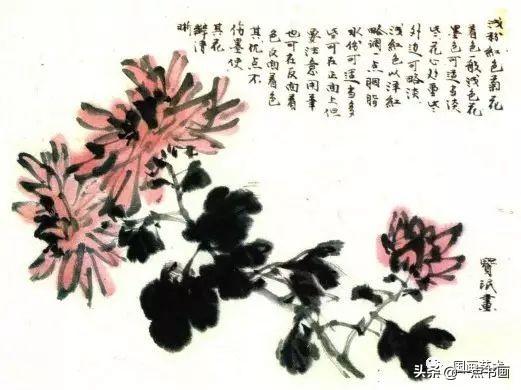 浅粉紅色菊花
着色般浅色花
墨色可适当淡
些花心处重些
外边可略淡
浅紅色以洋紅
略调一点胭脂
水份可适当多
皆可在正面上但
要注意用筆
也可在反面着
色反面着色
其优点不
伤墨使
其花
鲜清
晰
珉畫
国画艺术
头条@一点书画